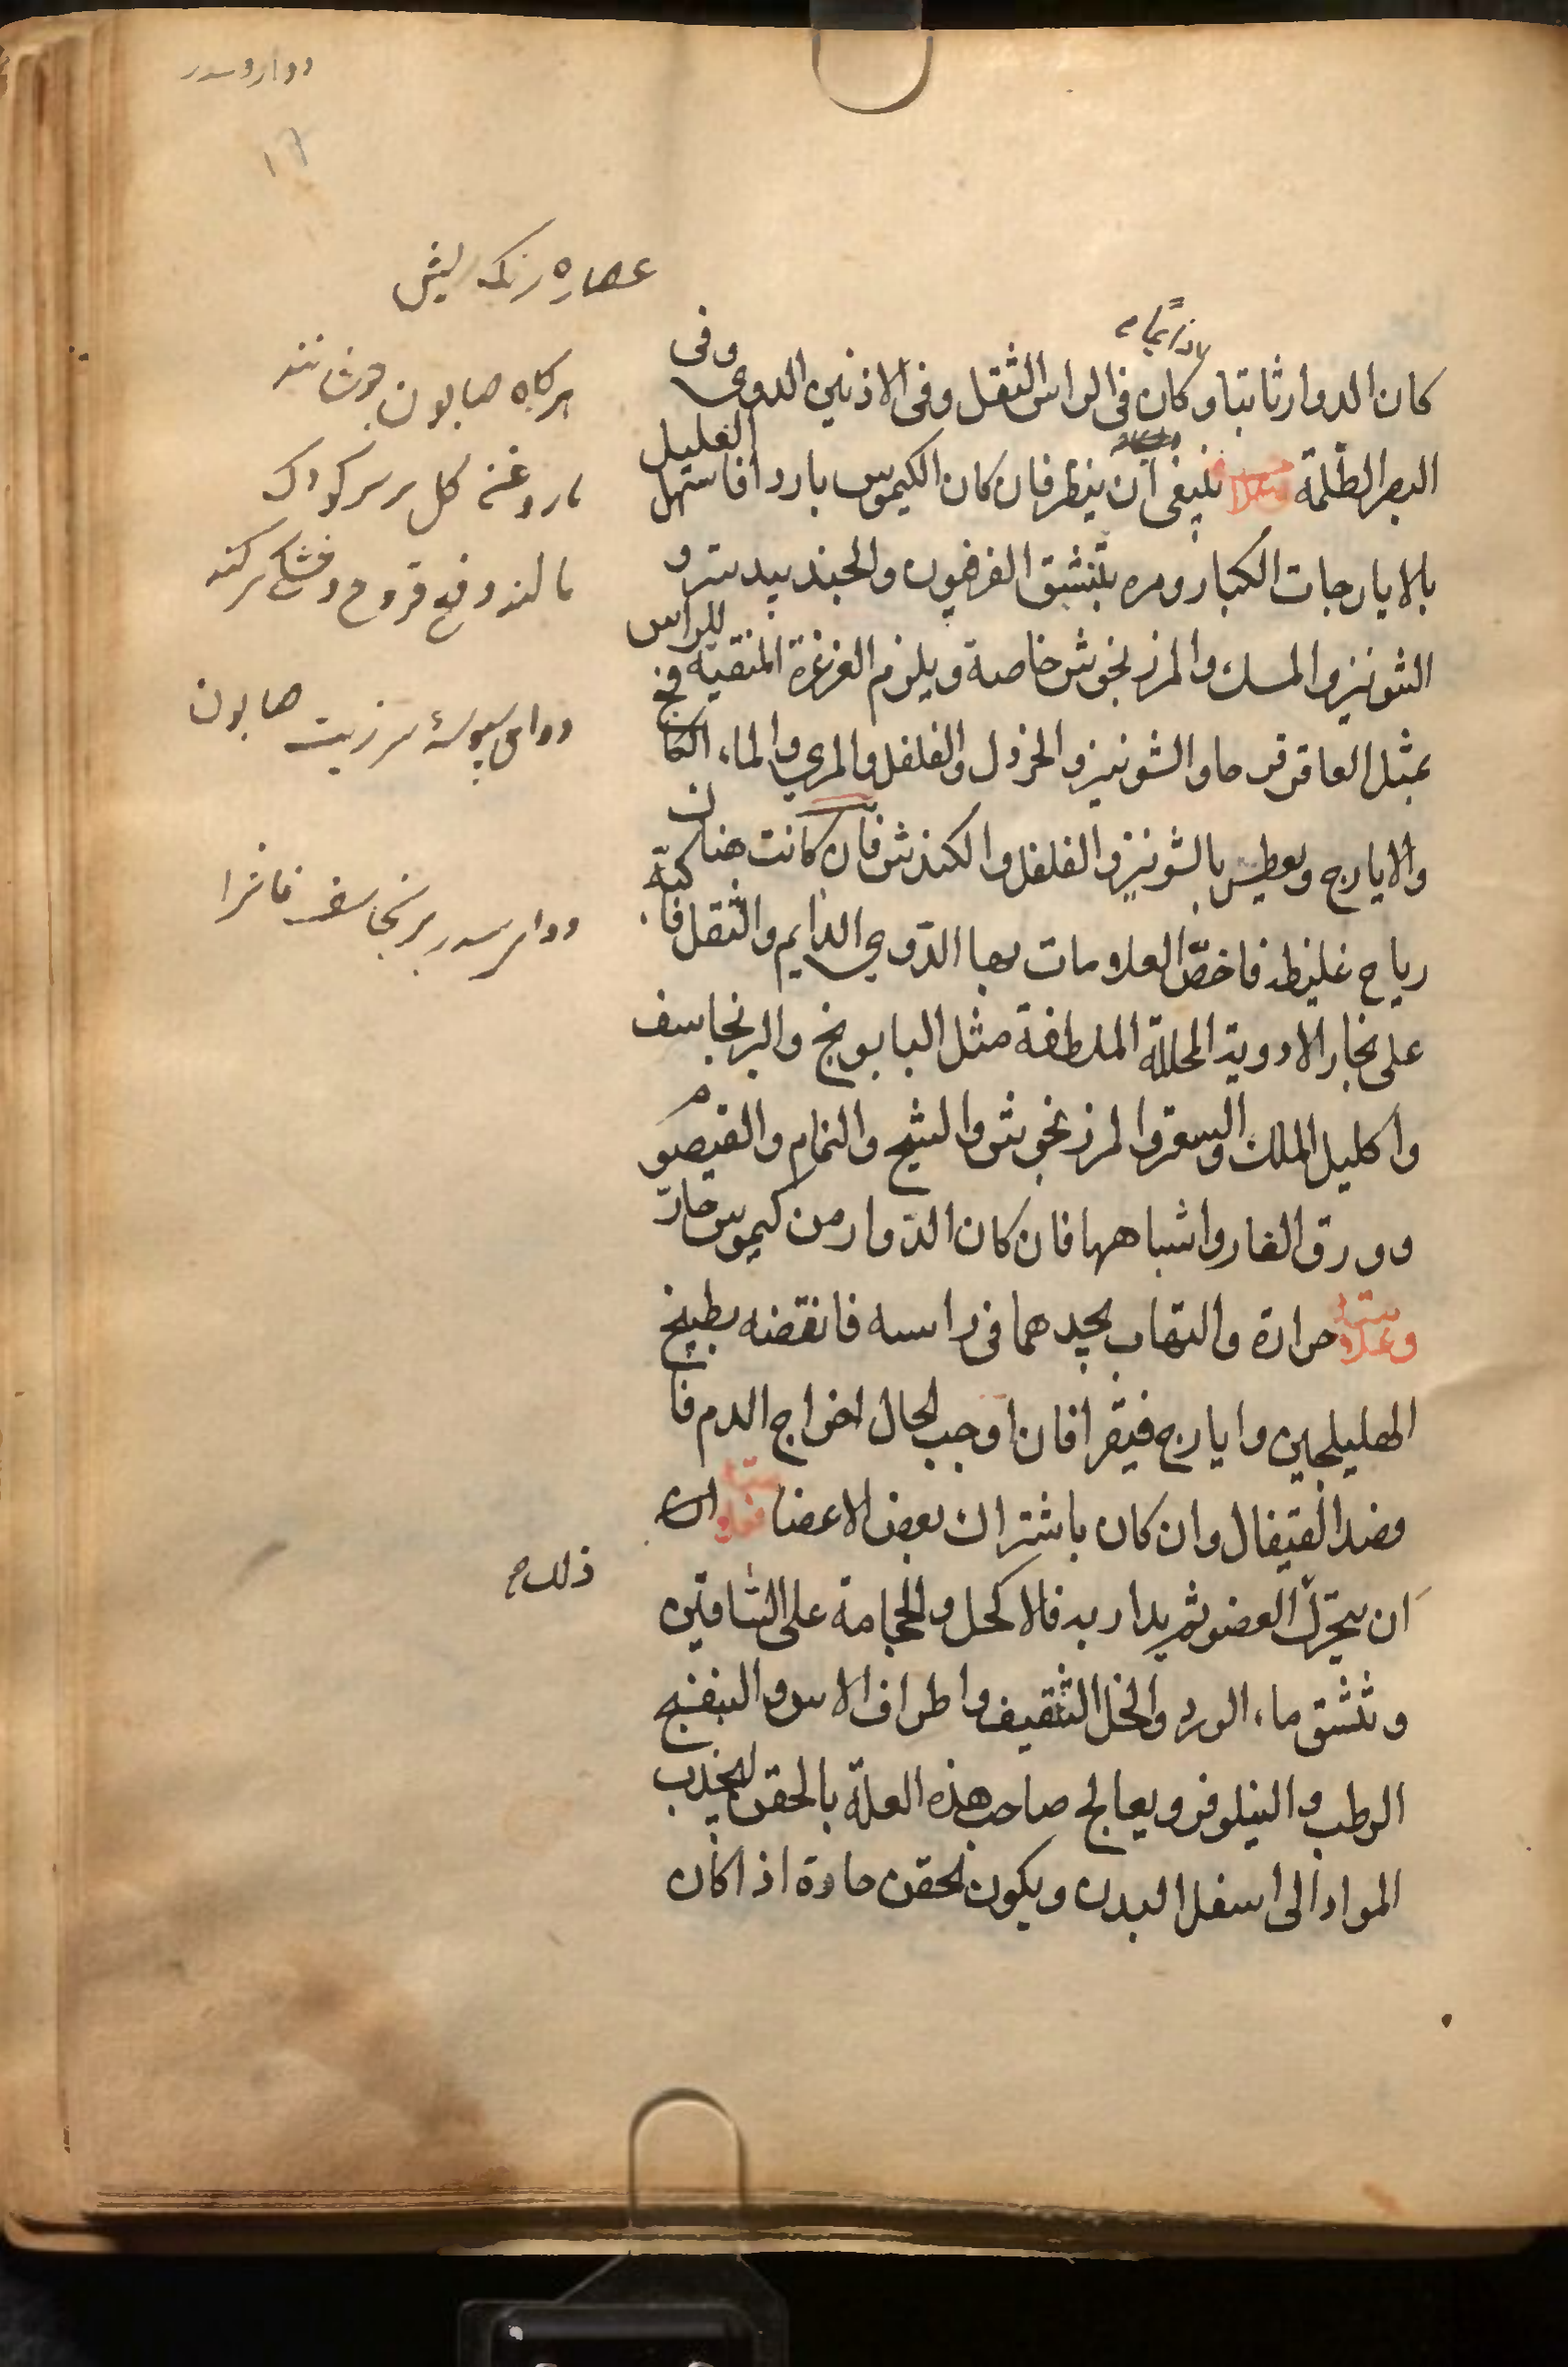 دوار وسدر
١٦
عصاره زنک لیش
هرکاه صابون جوشانند
باروغن کل بر سر کودک
مالند دفع قروح وخشکی سر کند
دوای سبوسهٔ سر زیت صابون
دوار سدر برنجاسف فاشرا
لازما م
كان الدوار ثابتا وكان فى الراس الثقل وفى الاذنين الدوى وفى
البصر الظلمة فينبغى ان ينظر فان كان الكيموس باردا فاسهل العليل
بالايارجات الكبار ومره بتنشق الفرفيون والجندبيدستر و
الشونيز والمسك والمرزنجوش خاصة ويلزم الغرغرة المنقية للراس
بمثل العاقرقرحا والشونيز والخردل والفلفل والمري والماء الكامخ
والايارج ويعطس بالشونيز والفلفل والكندش فان كانت هناك
رياح غليظه فاخص العلامات بها الدوي الدايم والثقل فاكبه
على بخار الادوية المحللة الملطفة مثل البابونج والبرنجاسف
واكليل الملك والسعتر والمرزنجوش والشيح والنمام والقيصوم
وورق الغار واشباهها فان كان الدوار من كيموس حار
وعلامته حرارة والتهاب يجدهما فى راسه فانفضه بطبيخ
الهليلجين وايارج فيقرا فان اوجب الحال اخراج الدم فا
فصد القيفال وان كان باشتراك بعض الاعضا
ان يتحرك العضو ثم يدار به فالاكحل والحجامة على الساقين
ذلك م
وتنشق ماء الورد والخل الثقيف واطراف الاس والبنفسج
الرطب والنيلوفر ويعالج صاحب هذه العلة بالحقن ليجذب
المواد الى اسفل البدن ويكون الحقن حادة اذا كان